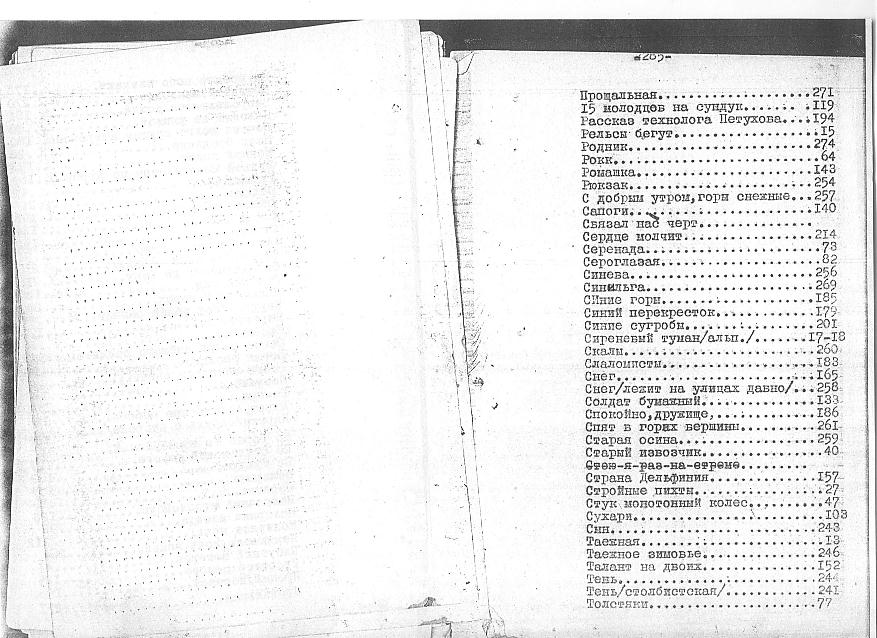 -285-
Прощальная.......................271
15 молодцев на сундук...... .119
Рассказ технолога Петухова...194
Рельсы бегут...................15
Родник.........................274
Рокк...........................64
Ромашка........................143
Рюкзак.........................254
С добрым утром,горы снежные...257
Сапоги.........................140
Связал нас черт...............
Сердце молчит..................214
Серенада.......................73
Сероглазая.....................82
Синева.........................256
Синильга.......................269
СИние горы.....................185
Синий перекресток..............179
Синие сугробы..................201
Сиреневый туман/альп./.......17-18
Скалы..........................260
Слаломисты.....................183
Снег...........................165
Снег/лежит на улицах давно/...258
Солдат бумажный................133
Спокойно,дружище,..............186
Спят в горах вершины...........261
Старая осина...................259
Старый извозчик................40
Стою-я-раз-на-стреме.........
Страна Дельфиния...............157
Стройные пихты.................27
Стук монотонный колес..........47
Сухари.........................103
Сын............................243
Таежная........................13
Таежное зимовье................246
Талант на двоих................152
Тень...........................244
Тень/столбистская/.............241
Толстяки.......................77